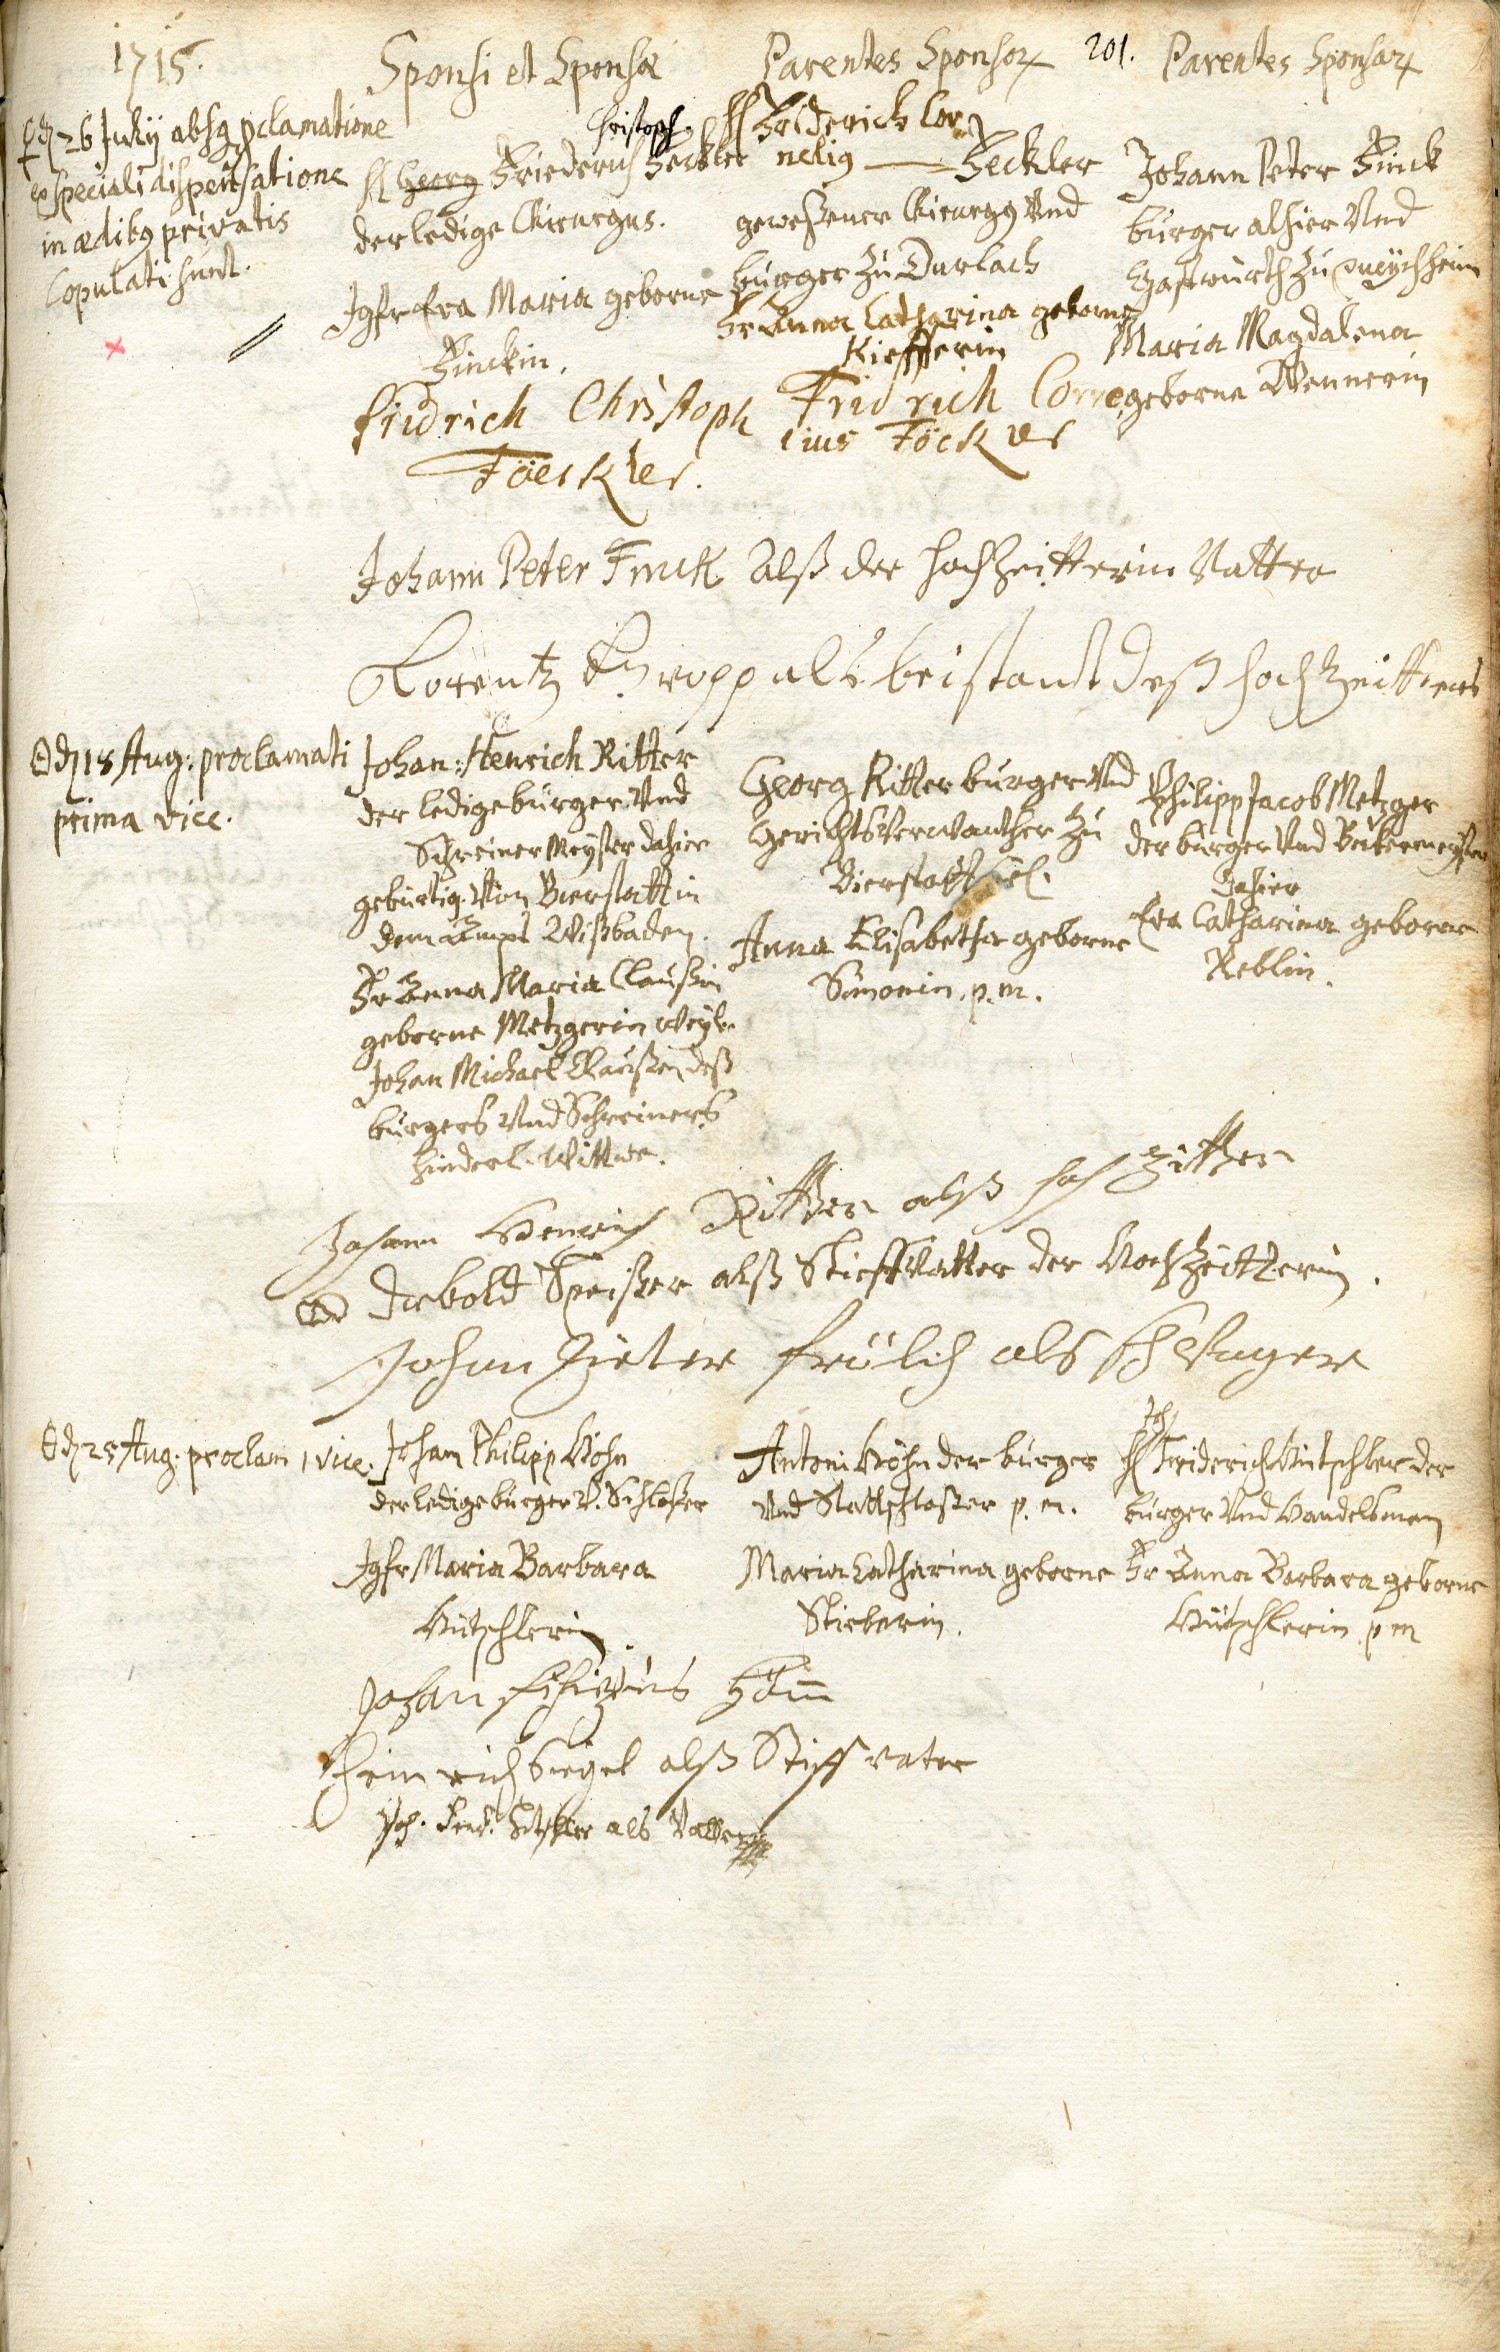 1715.
Sponsi et Sponsæ
Parentes Sponsor
201.
Parentes Sponsar
26 July absq pclamatione
ex speciali dispensatione
in ædibg privatis
Copulati sunt.
Christoph
H Georg Friederich Feckler
der ledige Chirurgus.
Jgfr Eva Maria geborne
Finckin.
H Friderich Cor
nelig — Feckler
geweßener Chirurgg Vnd
burger zu Durlach
Fr Anna Catharina geborne
Kiefferin
Johann Peter Finck
burger alhier Vnd
Gastwürth zu
Maria Magdalena
geborne Wennerin
fridrich Christoph
Föeckler.
Fridrich Corne
lius Föckler
Johann Peter Finck Alß der hochzeitterin Vatter
Lorentz als beistandt deß hochzeitters
18 Aug: proclamati
prima vice.
Johan: Henrich Ritter
der ledige burger Vnd
Schreiner Meyster dahier
gebürtig Von Bierstatt in
dem Ampt Wißbaden.
Fr Anna Maria Claußin
geborne Metzgerin weyl.
Johan Michael Claußen deß
burgers Vnd Schreiners
hinderl. Wittwe.
Georg Ritter burger Vnd
Gerichtsverwanther zu
Bierstatt sel.
Anna Elisabetha geborne
Simonin. p. m.
Philipp Jacob Metzger
der burger Vnd Beckermeyster
dahier
Eva Catharina geborne
Reblin.
Johann Henrich Ritter alß hochzitter
Diebold Speißer alß Stieffvatter der Hochzeitterin.
Johan Frölich als Schwager
25 Aug: proclam 1 vice.
Johann Philipp Höhn
der ledige burger V. Schloßer
Jgfr Maria Barbara
Hütschlerin.
Antoni Höhn der burger
Vnd Stattschloßer p. m.
Maria Catharina geborne
Stieberin.
Joh
H Friderich Hütschler der
burger Vnd Handelsman
Fr Anna Barbara geborne
Hütschlerin p m
Johan Höhn
Heinrich Siegel alß Stiffvater
Joh. Frid. Hitschler als Vatter